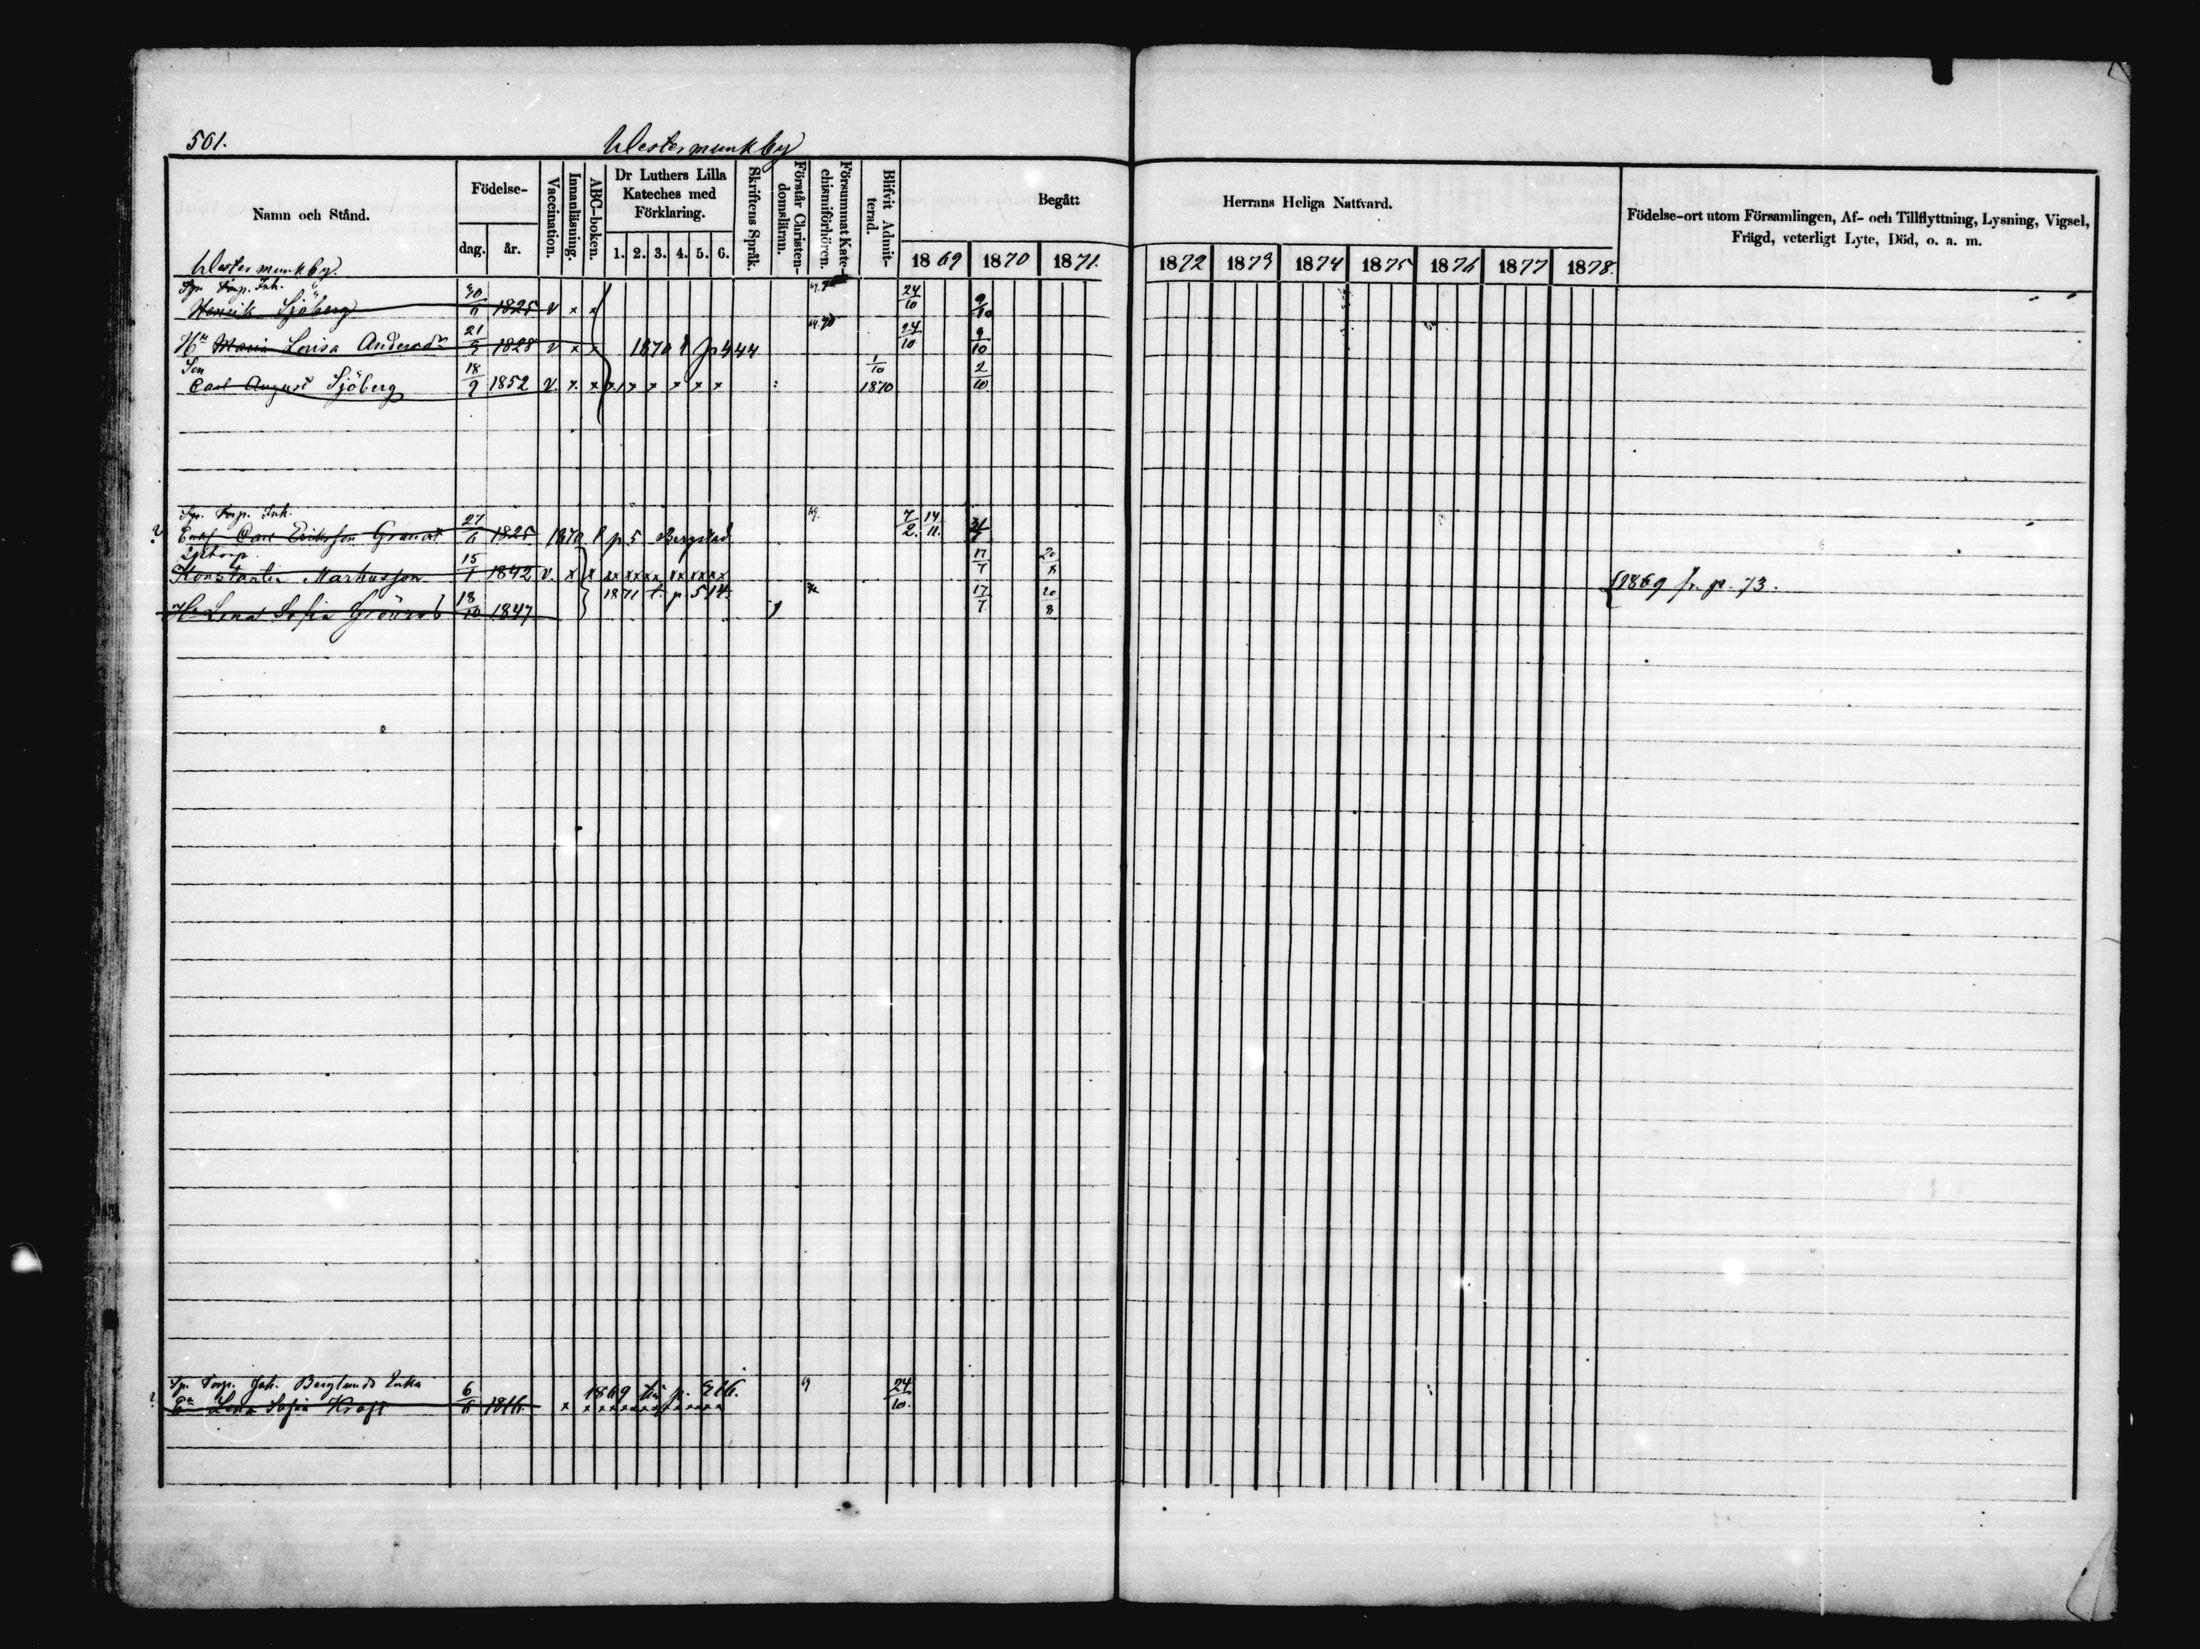 501. Westermunkby
Namn och Stånd. Födelse- dag. år. Vaccination. Innanläsning. ABC-boken. Dr Luthers Lilla Kateches med Förklaring. 1. 2. 3. 4. 5. 6. Skriftens Språk. Förstår Christendomsläran. Försummat Katechismiförhören. Blifvit Admitterad. Begått Herrans Heliga Nattvard. 1869 1870 1871. 1872 1873 1874 1875 1876 1877 1878. Födelse-ort utom Församlingen, Af- och Tillflyttning, Lysning, Vigsel, Frägd, veterligt Lyte, Död, o. a. m.
Westermunkby.
Torp. Inh.
Henrik Sjöberg 1825 v x x 24/10 9/10
Hu Maria Lovisa Andersdr 21 1828 v x x 1870 t p 444 24/10 9/10
Son
Carl August Sjöberg 18/9 1852 v. x x x x x x x x 1/10 1870 2/10
Torp. Inh.
Carl Eriksson Granat 27 1825 1870 p 5 Bergstad 69. 7/2. 14/11.
Konstantin Markusson 15/1 1842 v. x x xx xx xx xx xx xx 17/7 20 {1869 fr. p. 73.
Hu Lena Sofia Grönroos 18/10 1847 1871 t. p 514. 17/7 20/8
Torp. Joh. Berglunds Enka
Lena Sofia Kraft 6 1816 x 1869 till p. xxxxxxxxxxxx 69 24/10.